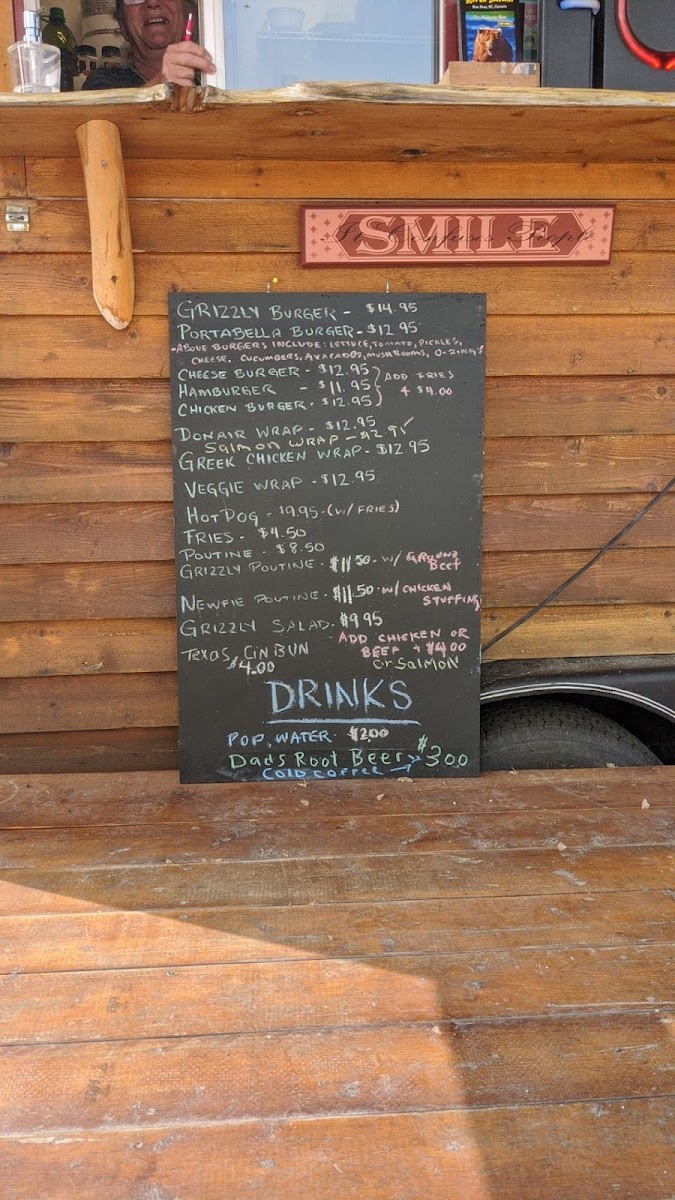 SMILE
It Confuses People
GRIZZLY BURGER - $14.95
PORTABELLA BURGER - $12.95
-ABOVE BURGERS INCLUDE: LETTUCE, TOMATO, PICKLES,
CHEESE, CUCUMBERS, AVACADOS, MUSHROOMS, O-RING'S
CHEESE BURGER - $12.95
HAMBURGER - $11.95
CHICKEN BURGER. $12.95
ADD FRIES
+ $4.00
DONAIR WRAP - $12.95
SALMON WRAP - $12.95
GREEK CHICKEN WRAP - $12.95
VEGGIE WRAP - $12.95
HOT DOG - $9.95 - (W/ FRIES)
FRIES - $4.50
POUTINE - $8.50
GRIZZLY POUTINE - $11.50 - W/ GROUND
BEEF
NEWFIE POUTINE - $11.50 W/ CHICKEN
STUFFING
GRIZZLY SALAD - $9.95
ADD CHICKEN OR
BEEF + $4.00
or SALMON
TEXAS CIN BUN
$4.00
DRINKS
POP, WATER - $2.00
Dads Root Beer > $3.00
COLD COFFEE →